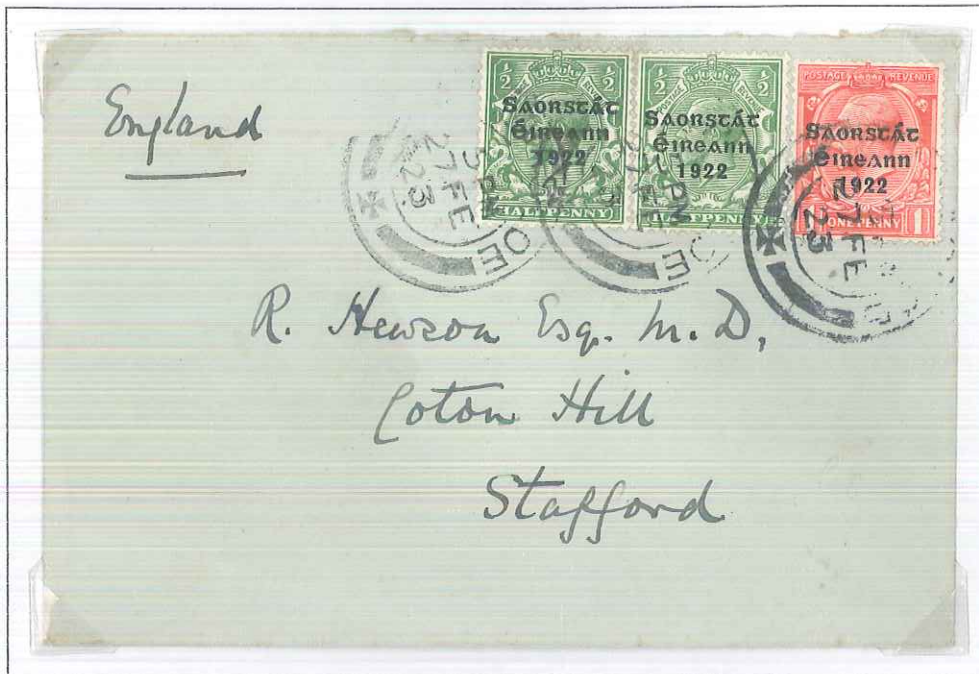 England
½ ½
SAORSTÁT
ÉIREANN
1922
HALFPENNY
½ ½
SAORSTÁT
ÉIREANN
1922
HALFPENNY
POSTAGE REVENUE
SAORSTÁT
ÉIREANN
1922
ONE PENNY 1
5 PM
27 FE
23
PM
27 FE
27 FE
23
R. Hewson Esq. M.D.,
Coton Hill
Stafford